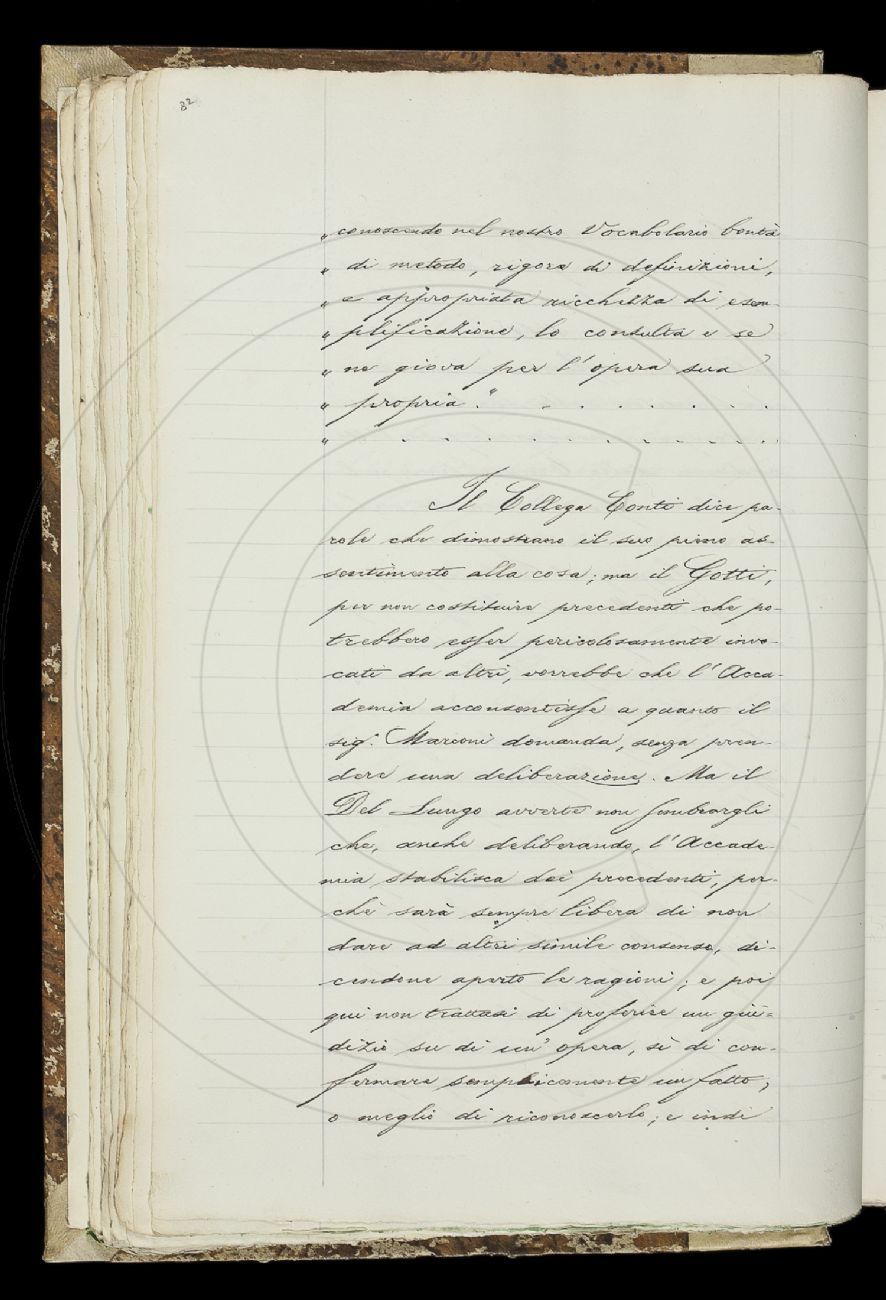 82
„ conoscendo nel nostro Vocabolario bontà
„ di metodo, rigore di definizioni,
„ e appropriata ricchezza di esem-
„ plificazione, lo consulta e se
„ ne giova per l'opera sua
„ propria." . . . . . . . .
„ . . . . . . . . . . . .
Il Collega Conti dice pa-
role che dimostrano il suo pieno as-
sentimento alla cosa; ma il Gotti,
per non costituire precedenti che po-
trebbero esser pericolosamente invo-
cati da altri, vorrebbe che l'Acca-
demia acconsentisse a quanto il
sig.r Marconi domanda, senza pren-
dere una deliberazione. Ma il
Del Lungo avverte non sembrargli
che, anche deliberando, l'Accade-
mia stabilisca dei precedenti, per-
chè sarà sempre libera di non
dare ad altri simile consenso, di-
cendone aperto le ragioni; e poi
qui non trattasi di proferire un giu-
dizio su di un' opera, sì di con-
fermare semplicemente un fatto,
o meglio di riconoscerlo; e indi